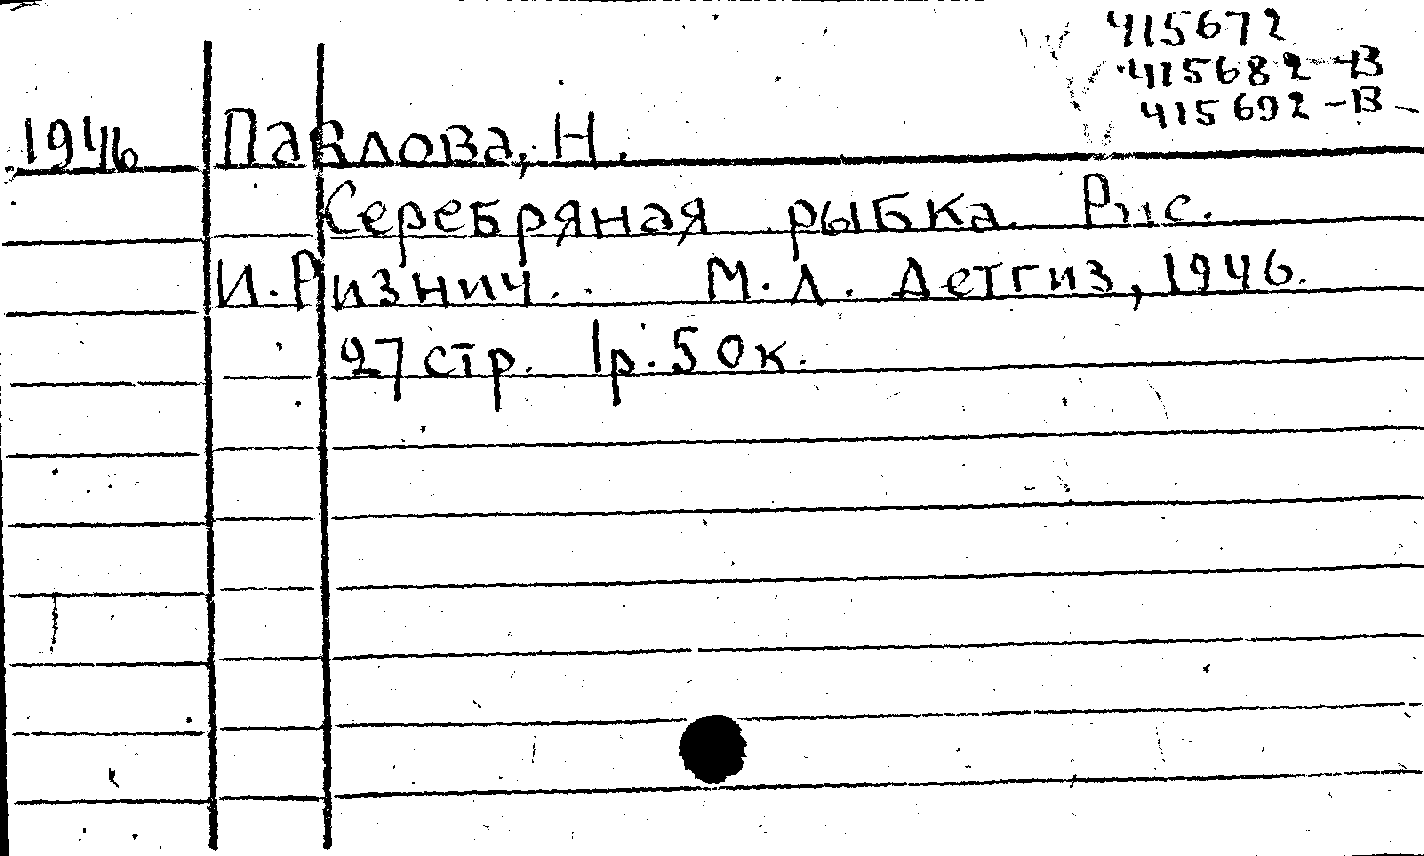 415672
415682-В
415692-В
1946 Павлова, Н.
Серебряная рыбка. Рис.
И. Ризнич. М. Л. Детгиз, 1946.
27 стр. 1р. 50к.